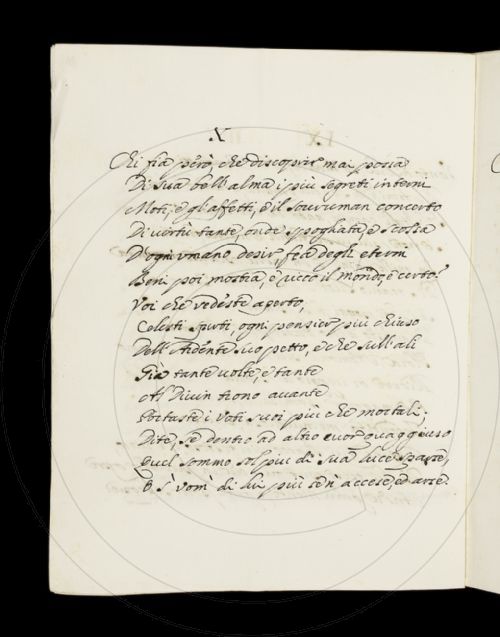 X.
Chi fia però, che discoprir mai possa
Di sua bell'alma i più segreti interni
Moti, e gl'affetti, e il sovruman concerto
Di vertù tante, onde spogliata, e scossa
D'ogni umano desir, fea degli eterni
Beni poi mostra, e ricco il mondo, e certo?
Voi che vedeste aperto,
Celesti spirti, ogni pensier più chiuso
Dell'Ardente suo petto, e che sull'ali
Già tante volte, e tante
Al Divin trono avante
Portaste i Voti suoi più che mortali.
Dite, se dentro ad altro cuor quaggiuso
Quel sommo sol più di sua luce sparse,
E s'ì vomì di lui più sen' accese, ed arse.